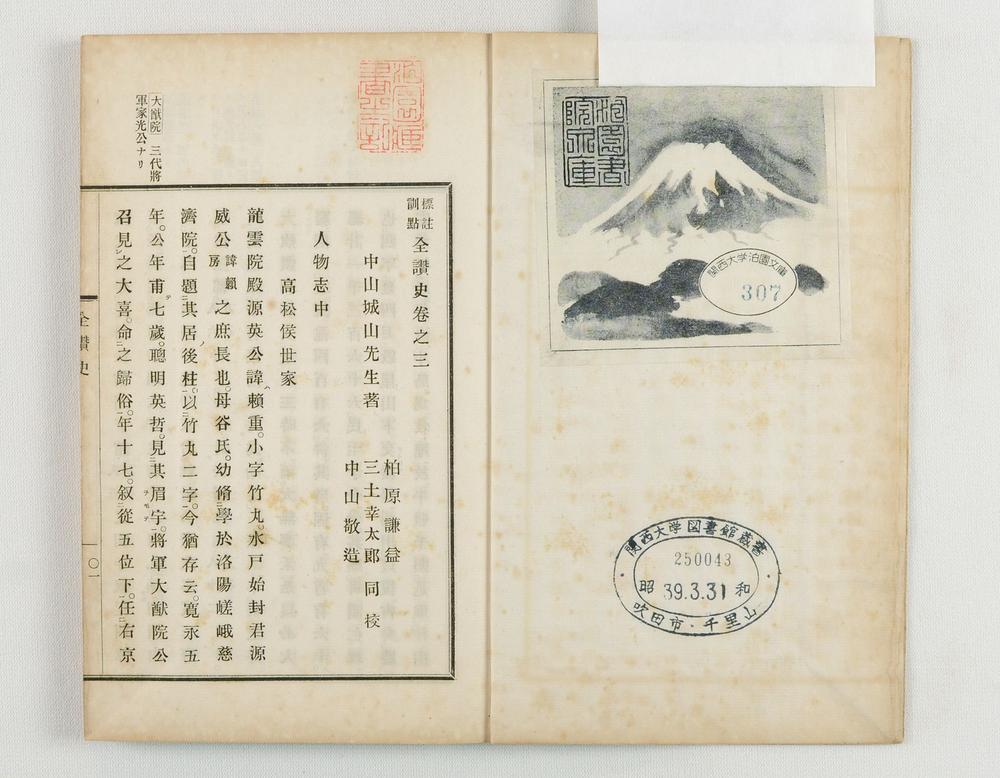 泊園書院文庫
関西大学泊園文庫
307
関西大学図書館蔵書
250043
昭和 39.3.31
吹田市・千里山
標註訓點 全讃史卷之三
中山城山先生著
柏原謙益
三土幸太郎 同校
中山敬造
高松侯世家
人物志中
龍雲院殿源英公諱賴重。小字竹丸。水戸始封君源
威公諱賴房之庶長也。母谷氏。幼脩學於洛陽嵯峨慈
濟院。自題其居後柱。以竹丸二字。今猶存云。寬永五
年。公年甫七歲。聰明英哲。見其眉宇。將軍大猷院公
召見之大喜。命之歸俗。年十七。叙從五位下。任右京
大猷院 三代將
軍家光公ナリ
全讃史
一〇一